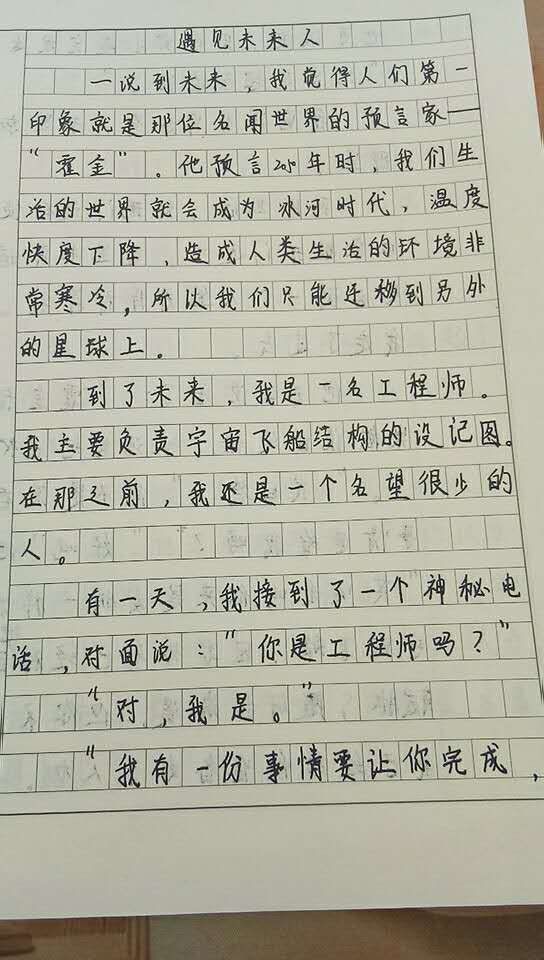 遇见未来人
一说到未来，我觉得人们第一
印象就是那位名闻世界的预言家——
“霍金”。他预言2050年时，我们生
活的世界就会成为冰河时代，温度
快度下降，造成人类生活的环境非
常寒冷，所以我们只能迁移到另外
的星球上。
到了未来，我是一名工程师。
我主要负责宇宙飞船结构的设记图。
在那之前，我还是一个名望很少的
人。
有一天，我接到了一个神秘电
话，对面说：“你是工程师吗？”
“对，我是。”
“我有一份事情要让你完成，